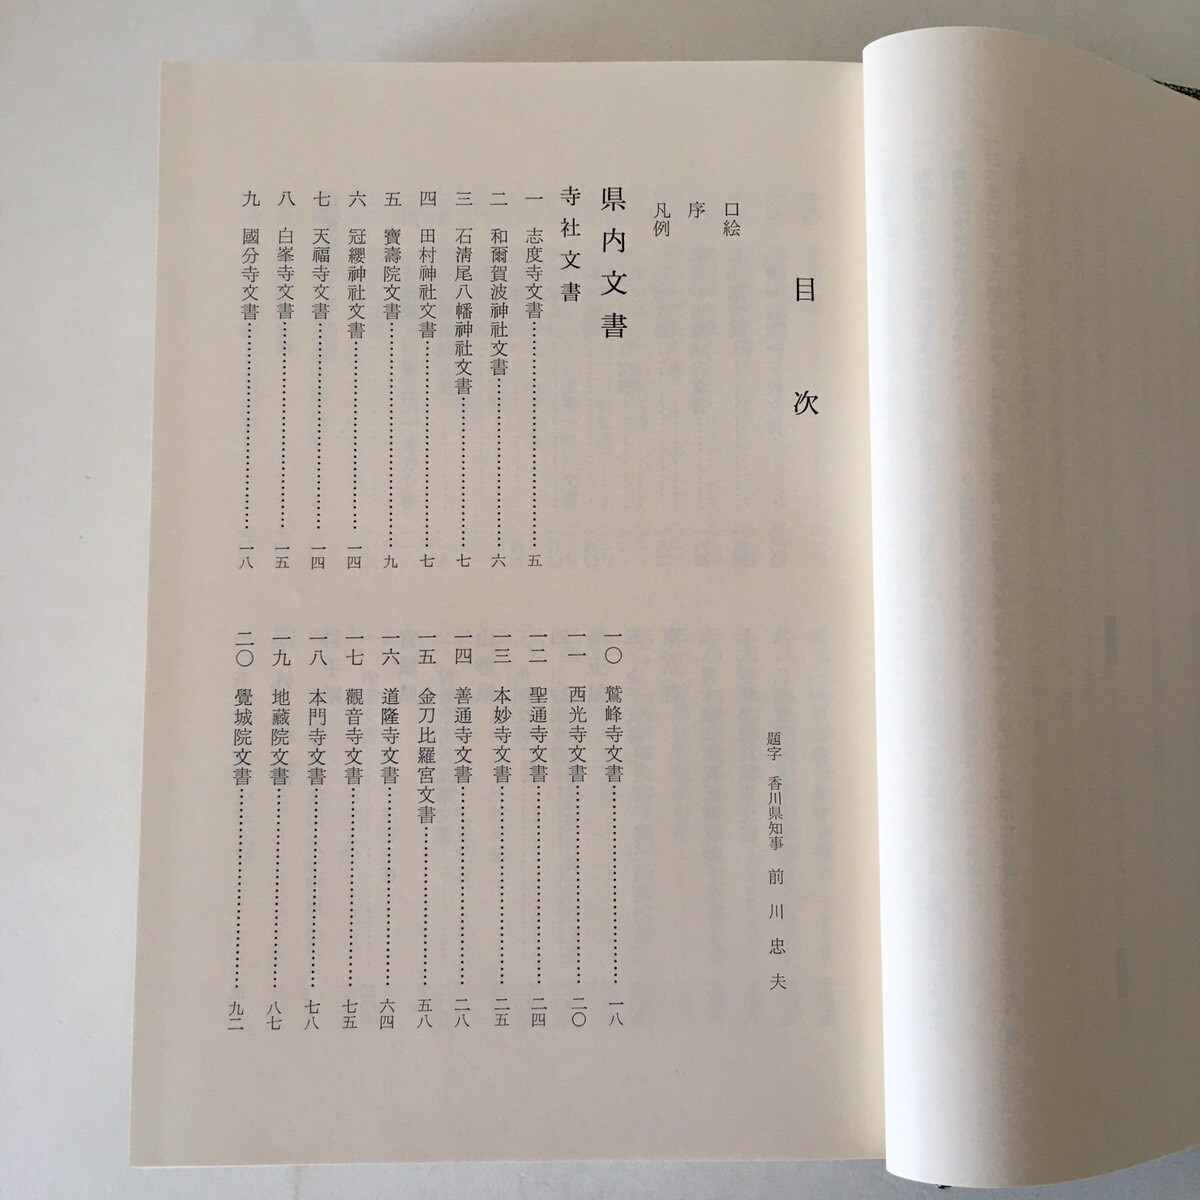 目次
題字　香川県知事　前川忠夫
口絵
序
凡例
県内文書
寺社文書
一　志度寺文書……………………五
二　和爾賀波神社文書……………………六
三　石清尾八幡神社文書……………………七
四　田村神社文書……………………七
五　寶壽院文書……………………九
六　冠纓神社文書……………………一四
七　天福寺文書……………………一四
八　白峯寺文書……………………一五
九　國分寺文書……………………一八
一〇　鷲峰寺文書……………………一八
一一　西光寺文書……………………二〇
一二　聖通寺文書……………………二四
一三　本妙寺文書……………………二五
一四　善通寺文書……………………二八
一五　金刀比羅宮文書……………………五八
一六　道隆寺文書……………………六四
一七　觀音寺文書……………………七五
一八　本門寺文書……………………七八
一九　地藏院文書……………………八七
二〇　覺城院文書……………………九二